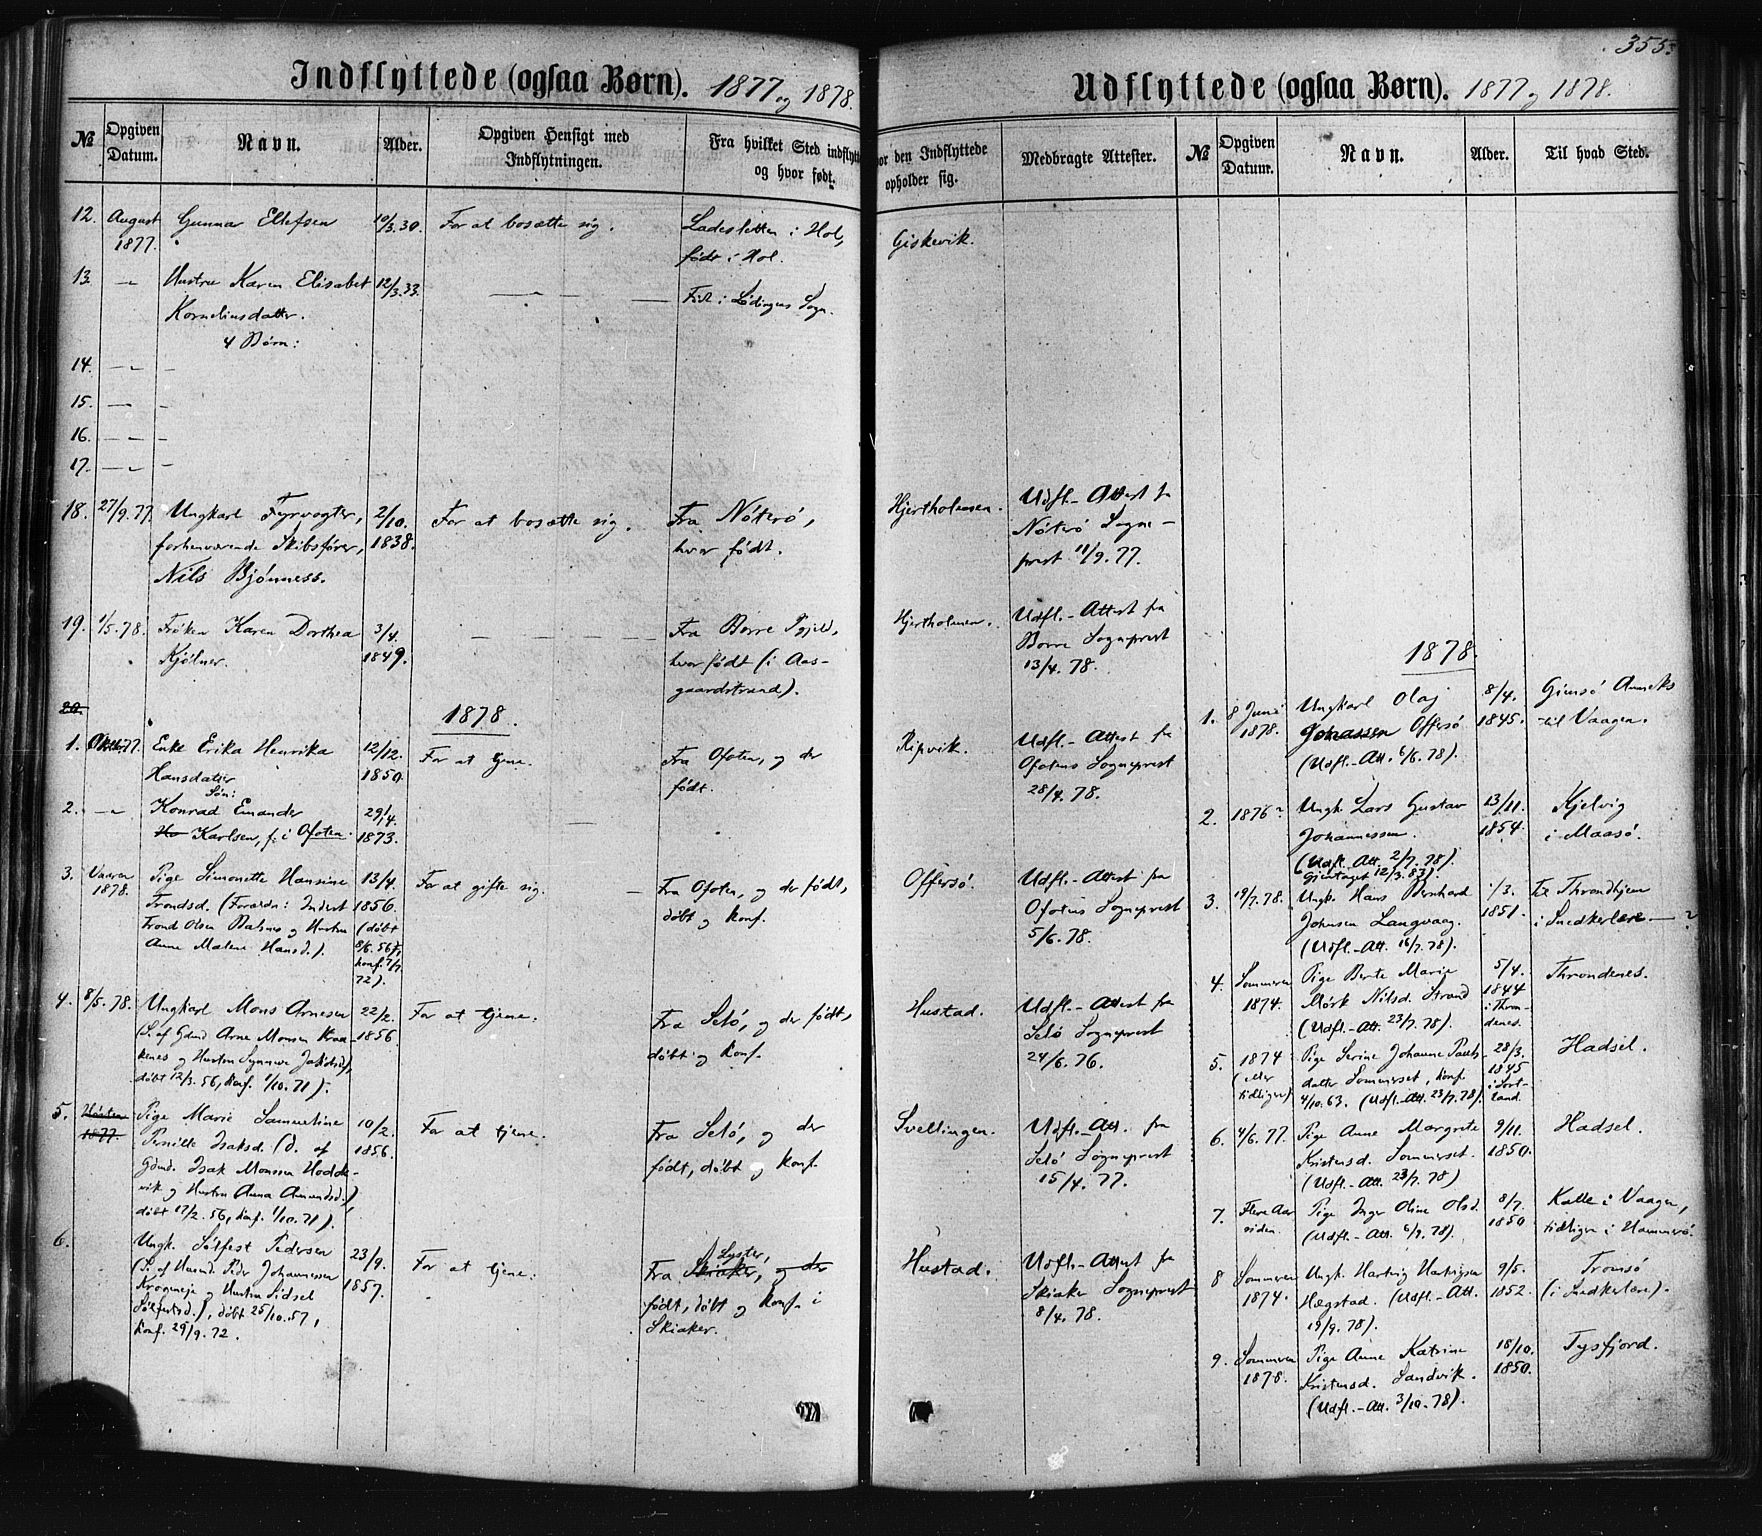 Indflyttede (ogsaa Børn). 1877 og 1878.
№
Opgiven Datum.
Navn.
Alder.
Opgiven Hensigt med Indflytningen.
Fra hvilket Sted indflytt
og hvor født.
or den Indflyttede
opholder sig.
Medbragte Attester.
12. August 1877. Gunnar Ellefsen 10/3.30. For at bosætte sig. Ladesletten i Hol, Giskevik.
født i Hol.
13. Hustru Karen Elisabet 12/3.33. Født i Lødingens Sogn.
Korneliusdatter.
4 Børn:
14.
15.
16.
17.
18. 27/9.77. Ungkarl Fyrvogter, 2/10. For at bosætte sig. Fra Nøterø, Hjertholmen. Udfl.-Attest fra
forhenværende Skibsfører, 1838. hvor født. Nøterø Sogne-
Nils Bjønness. prest 11/9.77.
19. 1/5.78. Frøken Karen Dorthea 3/4. Fra Borre Pgjeld, Hjertholmen. Udfl.-Attest fra
Kjølner. 1849. hvor født (i Aas- Borre Sogneprest
gaardstrand). 13/4.78.
20.
1878.
1. Enke Erika Henrika 12/12. For at tjene. Fra Ofoten, og der Ripvik. Udfl.-Attest fra
Hansdatter 1850. født. Ofotens Sogneprest
Søn: 28/4.78.
2. Konrad Emander 29/4.
Karlsen, f. i Ofoten. 1873.
3. Vaaren Pige Simonette Hansine 13/4. For at gifte sig. Fra Ofoten, og der født, Offersø. Udfl.-Attest fra
1878. Trondsd. (Forældre: Inderst 1856. døbt og konf. Ofotens Sogneprest
Trond Olsen og Hustru (døbt 5/6.78.
Anne Malene Hansd.). 8/6.56,
konf. 7/7
72).
4. 8/5.78. Ungkarl Mons Arnesen 22/2. For at tjene. Fra Selø, og der født, Hustad. Udfl.-Attest fra
(S. af Gdmd Arne Monsen Kraa- 1856 døbt og konf. Selø Sogneprest
kenes og Hustru Synneve Jakobsd), 24/6.76.
døbt 12/3.56, konf. 1/10.71).
5. Høsten Pige Marie Sammeline 10/2. For at tjene. Fra Selø, og der Svellingen. Udfl.-Att. fra
1877. Pernille Isaksd. (D. af 1856. født, døbt og konf. Selø Sogneprest
Gdmd. Isak Monsen Hodde- 15/4.77.
vik og Hustru Anna Amundsd.),
døbt 17/2.56, konf. 1/10.71).
6. Ungk. Sølfest Pedersen 23/9. For at tjene. Fra Skiaker, Lyster, og der Hustad. Udfl.-Attest fra
(S. af Husmd. Peder Johannessen 1857. født, døbt og konf. i Skiaker Sogneprest
og Hustru Sidsel Skiaker. 8/4.78.
Sølfestsd.), døbt 25/10.57,
konf. 29/9.72.
355.
Udflyttede (ogsaa Børn). 1877 og 1878.
№
Opgiven Datum.
Navn.
Alder.
Til hvad Sted.
1878.
1. 8 Juni Ungkarl Olaj 8/4. Gimsø Anneks
1878. Johansen Offersø 1845. til Vaagen.
(Udfl.-Att. 6/6.78).
2. 1876? Ungk. Lars Gustav 13/11. Kjelvig
Johannessen. 1854. i Maasø.
(Udfl. Att. 2/7.78).
Gjentaget 12/3.83).
3. 19/7.78. Ungk. Hans Bernhard 1/3. Til Throndhjem
Johnsen Langvaag. 1851. i Snedkerlære
(Udfl.-Att. 16/7.78).
4. Sommeren Pige Berte Marie 5/4. Throndenes.
1874. Mørk Nilsd. Strand 1844
(Udfl.-Att. 23/7.78). i Thron-
denes.
5. 1874 Pige Serine Johanne Pauls- 28/3. Hadsel.
(eller datter Sommerset, konf. 1845
tidligere) 4/10.63. (Udfl.-Att. 23/7.78). i Sort-
land.
6. 4/6.77. Pige Anne Margrete 9/11. Hadsel.
Kristensd. Sommerset. 1850.
(Udfl.-Att. 23/7.78)
7. Flere Aar Pige Inger Oline Olsd. 8/7. Kalle i Vaagen,
siden. (Udfl.-Att. 6/9.78). 1850 tidligere i Hammerø.
8 Sommeren Ungk. Hartvig Hartvigsen 9/5. Tromsø
1874. Hegstad. (Udfl.-Att. 1852. (i Snedkerlære).
19/9.78).
9. Sommeren Pige Anne Katrine 18/10. Tysfjord.
1878. Kristensd. Sandvik. 1850.
(Udfl.-Att. 3/10.78).